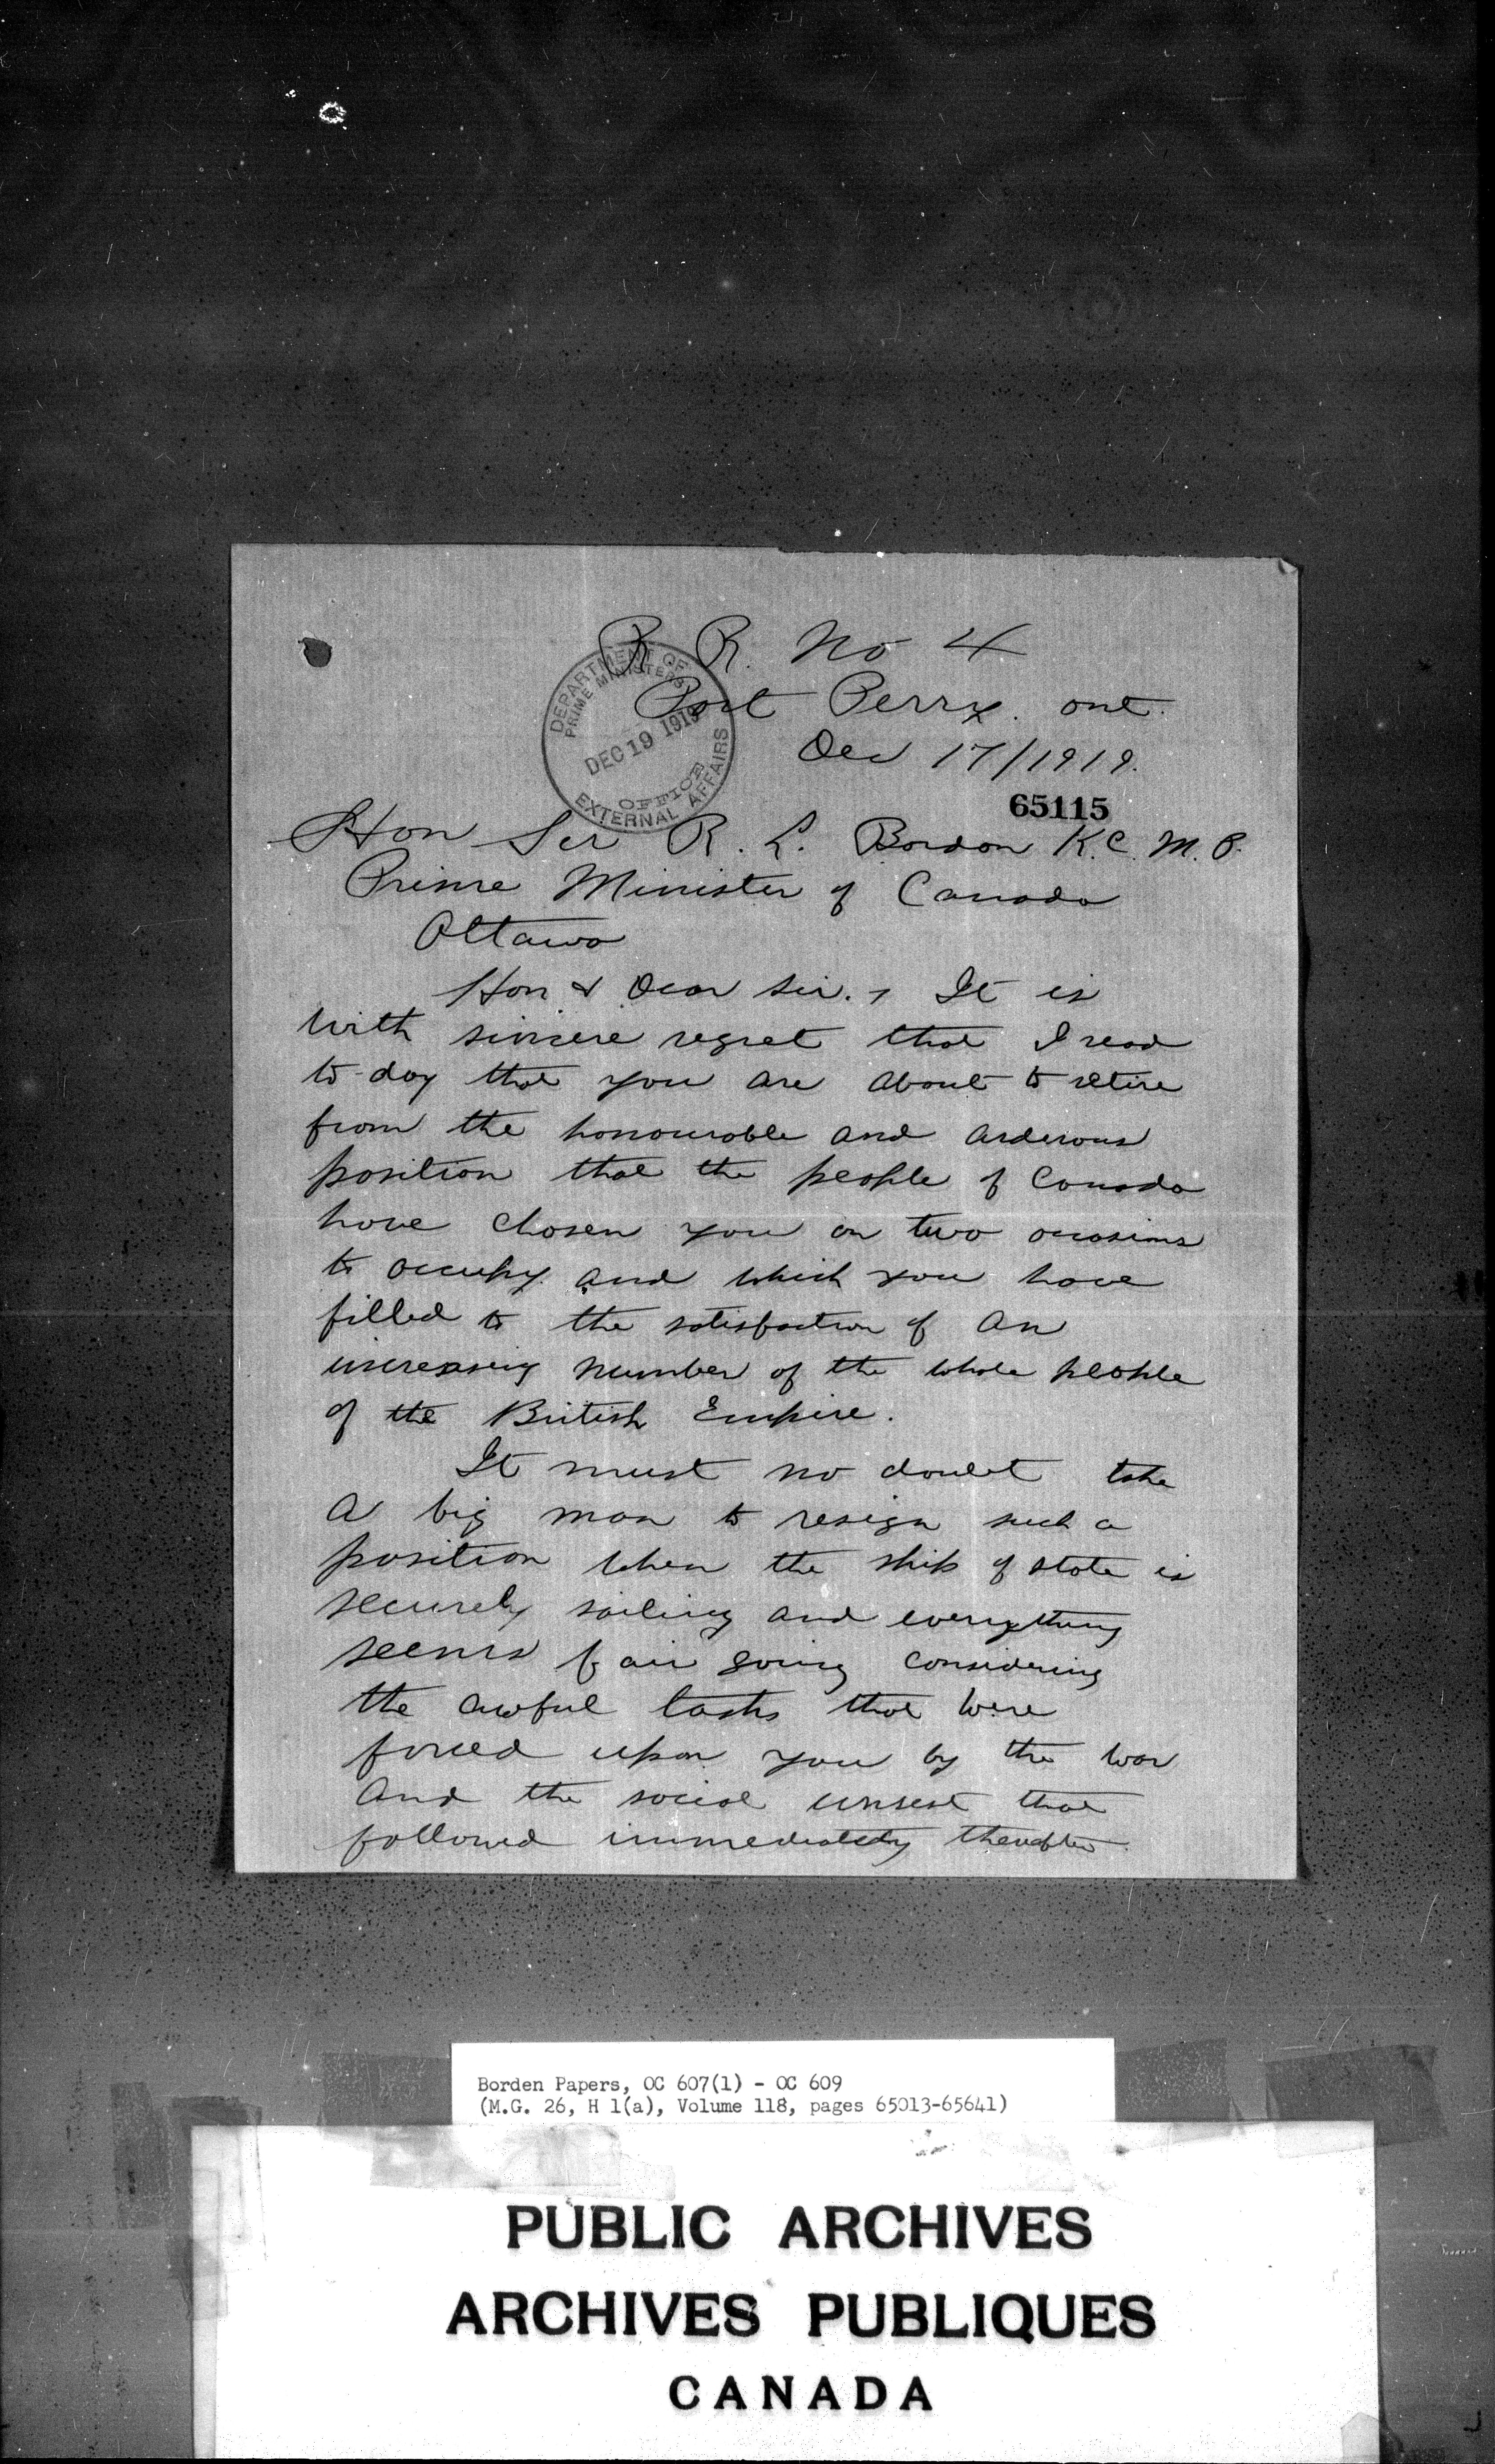 R R. No 4
Port Perry. Ont.
Dec 17/1919.
DEPARTMENT OF
PRIME MINISTERS
DEC 19 1919
OFFICE
EXTERNAL AFFAIRS
65115
Hon Sir R. L. Bordon K.C. M.P.
Prime Minister of Canada
Ottawa
Hon & Dear Sir., It is
with sincere regret that I read
to-day that you are about to retire
from the honourable and arderous
position that the people of Canada
have chosen you on two occasions
to occupy and which you have
filled to the satisfaction of an
increasing number of the whole people
of the British Empire.
It must no doubt take
a big man to resign such a
position when the ship of state is
securely sailing and everything
seems fair going considering
the awful tasks that were
forced upon you by the war
and the social unrest that
followed immediately thereafter.
Borden Papers, OC 607(1) - OC 609
(M.G. 26, H 1(a), Volume 118, pages 65013-65641)
PUBLIC ARCHIVES
ARCHIVES PUBLIQUES
CANADA